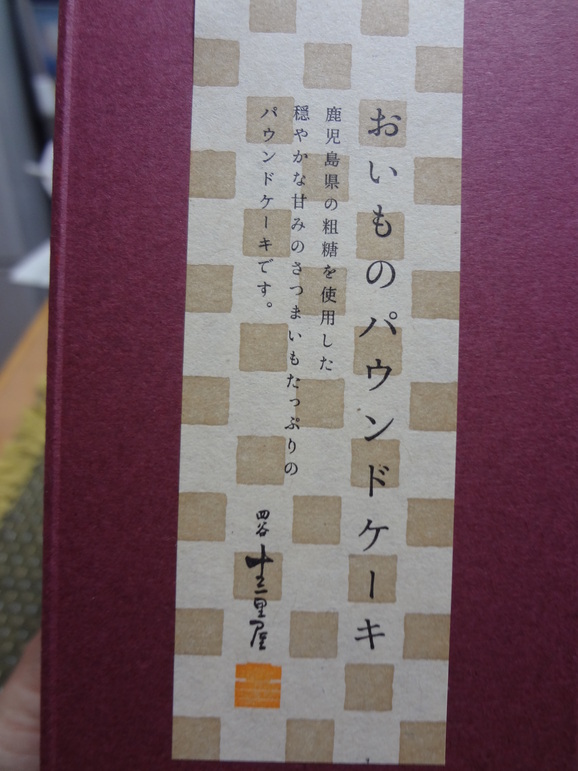 おいものパウンドケーキ
鹿児島県の粗糖を使用した
穏やかな甘みのさつまいもたっぷりの
パウンドケーキです。
四谷 十三里屋